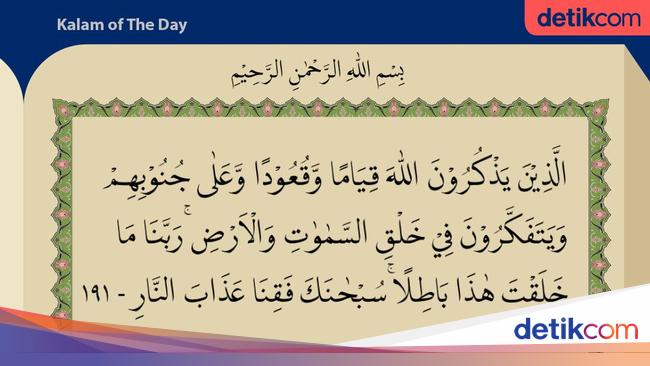 Kalam of The Day
detikcom
بِسْمِ اللهِ الرَّحْمٰنِ الرَّحِيْمِ
الَّذِيْنَ يَذْكُرُوْنَ اللهَ قِيَامًا وَّقُعُوْدًا وَّعَلٰى جُنُوْبِهِمْ
وَيَتَفَكَّرُوْنَ فِيْ خَلْقِ السَّمٰوٰتِ وَالْاَرْضِۚ رَبَّنَا مَا
خَلَقْتَ هٰذَا بَاطِلًاۚ سُبْحٰنَكَ فَقِنَا عَذَابَ النَّارِ - ١٩١
detikcom